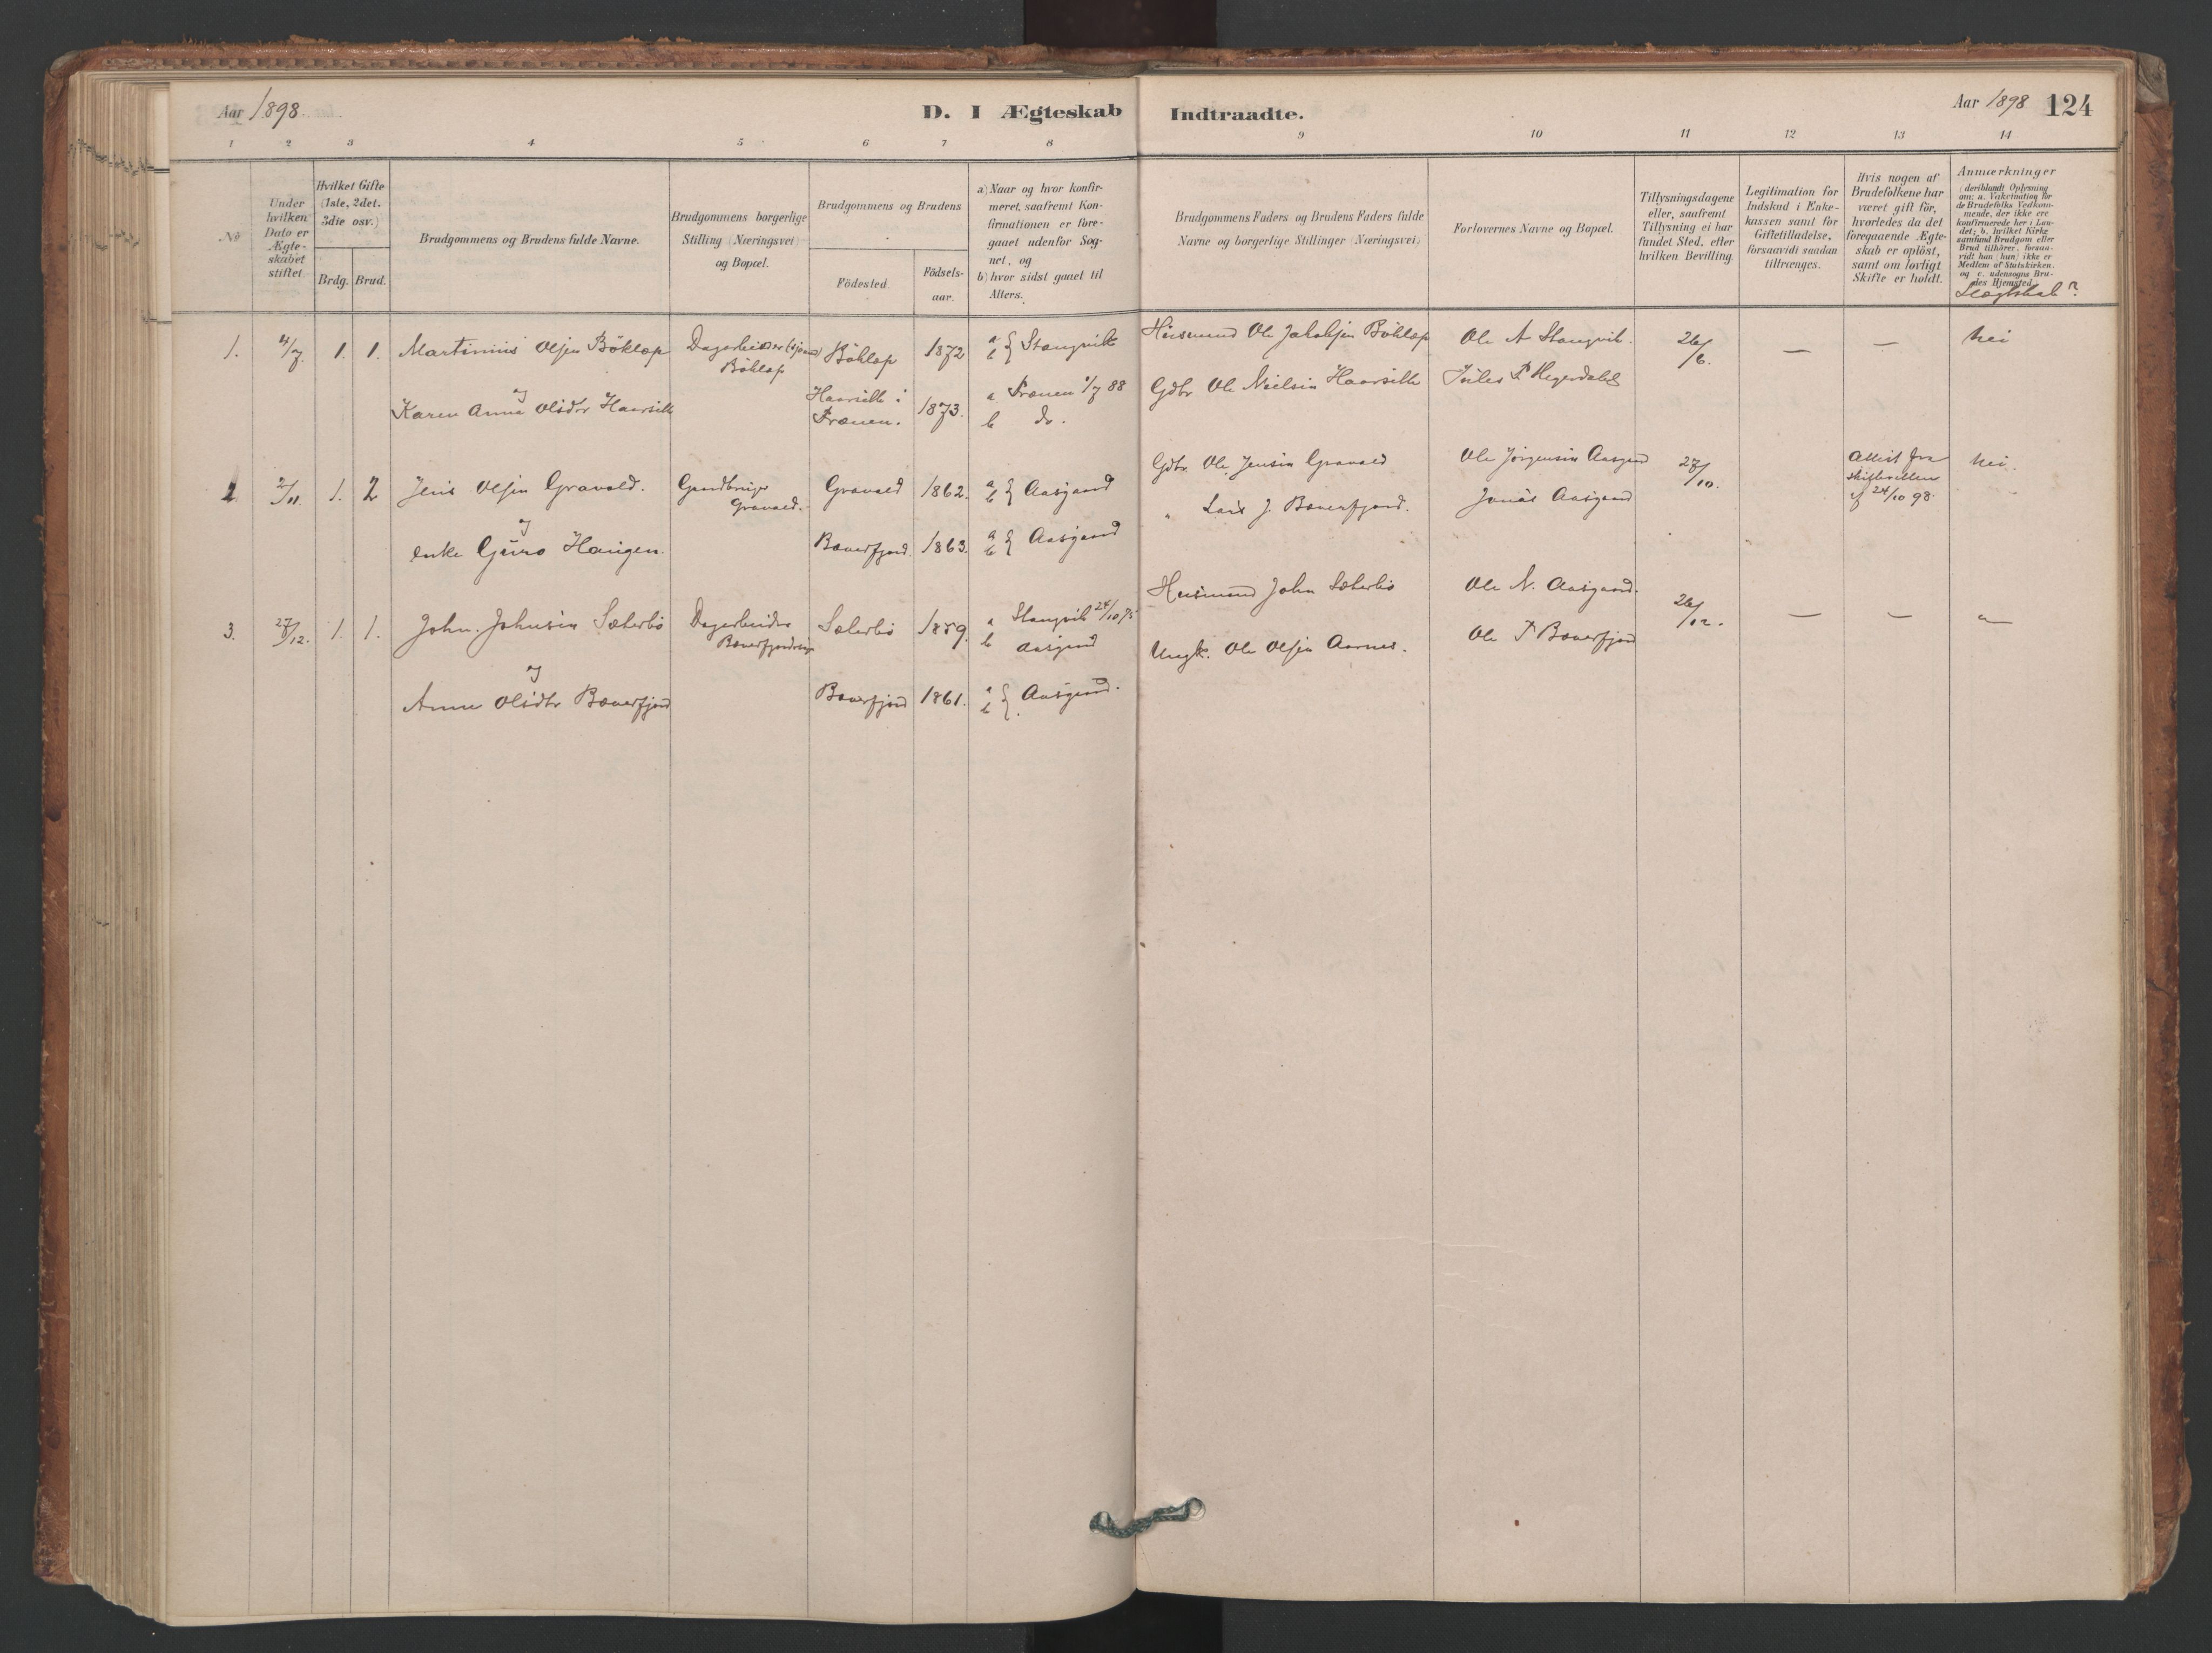 Aar 1898
D. I Ægteskab Indtraadte.
Aar 1898 124
1 2 3 4 5 6 7 8 9 10 11 12 13 14
No
Under hvilken Dato er Ægteskabet stiftet.
Hvilket Gifte (1ste, 2det. 3die osv.)
Brdg. Brud.
Brudgommens og Brudens fulde Navne.
Brudgommens borgerlige Stilling (Næringsvei) og Bopæl.
Brudgommens og Brudens
Födested.
Födselsaar.
a) Naar og hvor konfirmeret, saafremt Konfirmationen er foregaaet udenfor Sognet, og
b) hvor sidst gaaet til Alters.
Brudgommens Faders og Brudens Faders fulde Navne og borgerlige Stillinger (Næringsvei)
Forlovernes Navne og Bopæl.
Tillysningsdagene eller, saafremt Tillysning ei har fundet Sted, efter hvilken Bevilling.
Legitimation for Indskud i Enkekassen samt for Giftetilladelse, forsaavidt saadan tiltrænges.
Hvis nogen af Brudefolkene har været gift för, hvorledes da det foregaaende Ægteskab er oplöst, samt om lovligt Skifte er holdt.
Anmærkninger
(deriblandt Oplysning om: a. Vakcination for de Brudefolks Vedkommende, der ikke ere konfirmerede her i Landet; b. hvilket Kirkesamfund Brudgom eller Brud tilhører, forsaavidt han (hun) ikke er Medlem af Statskirken. og c. udensogns Brudes Hjemsted.
Slægtskab?
1. 4/7. 1. 1. Martinius Olsen Böklep Dagarbeider Böklep Böklep 1872 a b } Stangvik Husmand Ole Jakobsen Böklep Ole A Stangvik. 26/6. — — Nei
og
Karen Anna Olsdtr Haarsell Haarsell i Frænen. 1873. a Frænen 1/7 88 b do. Gdbr Ole Nielsen Haarsell P Hegerdahl
2 2/11. 1. 2 Jens Olsen Gravald. Gaardbruger Gravald. Gravald 1862. a b } Aasgaard Gdbr. Ole Jensen Gravald Ole Jörgensen Aasgaard 27/10. Attest fra skifteretten af 24/10 98. Nei.
og
enke Guro Haugen. Bæverfjord. 1863. a b } Aasgaard " Lars J. Bæverfjord. Jonas Aasgaard
3. 27/12. 1. 1. John. Johnsen Sæterbö Dagarbeider Sæterbö 1859. a Stangvik b Aasgaard Husmand John Sæterbö Ole N. Aasgaard. 26/12. — — "
og
Anne Olsdtr Bæverfjord Bæverfjord 1861. a b } Aasgaard. Ungk. Ole Olsen Aarnes. Ole P Bæverfjord